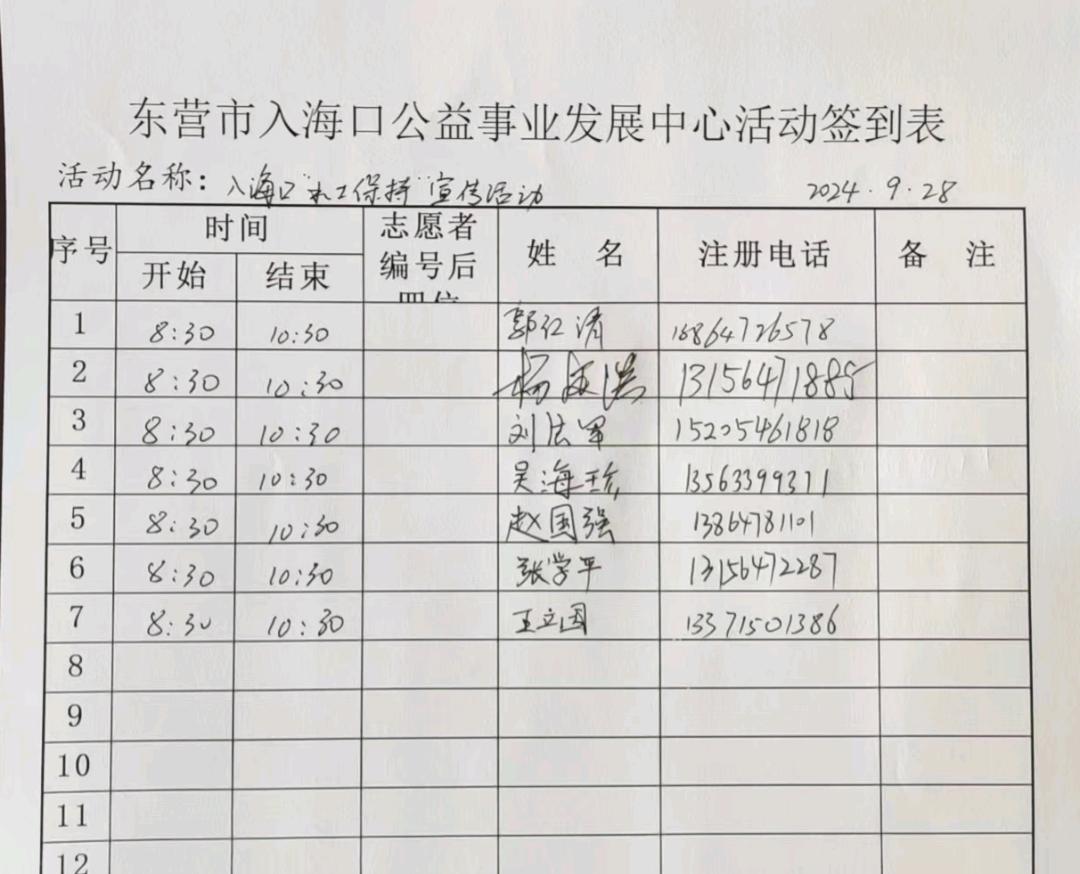 东营市入海口公益事业发展中心活动签到表
活动名称：入海口"水土保持"宣传活动 2024.9.28
序号 时间 志愿者编号后四位 姓名 注册电话 备注
开始 结束
1 8:30 10:30 郭红清 18864726578
2 8:30 10:30 杨 13156471885
3 8:30 10:30 刘法军 15205461818
4 8:30 10:30 吴海珍 13563399371
5 8:30 10:30 赵国强 13864781101
6 8:30 10:30 张学平 13156472287
7 8:30 10:30 王立国 13371501386
8
9
10
11
12